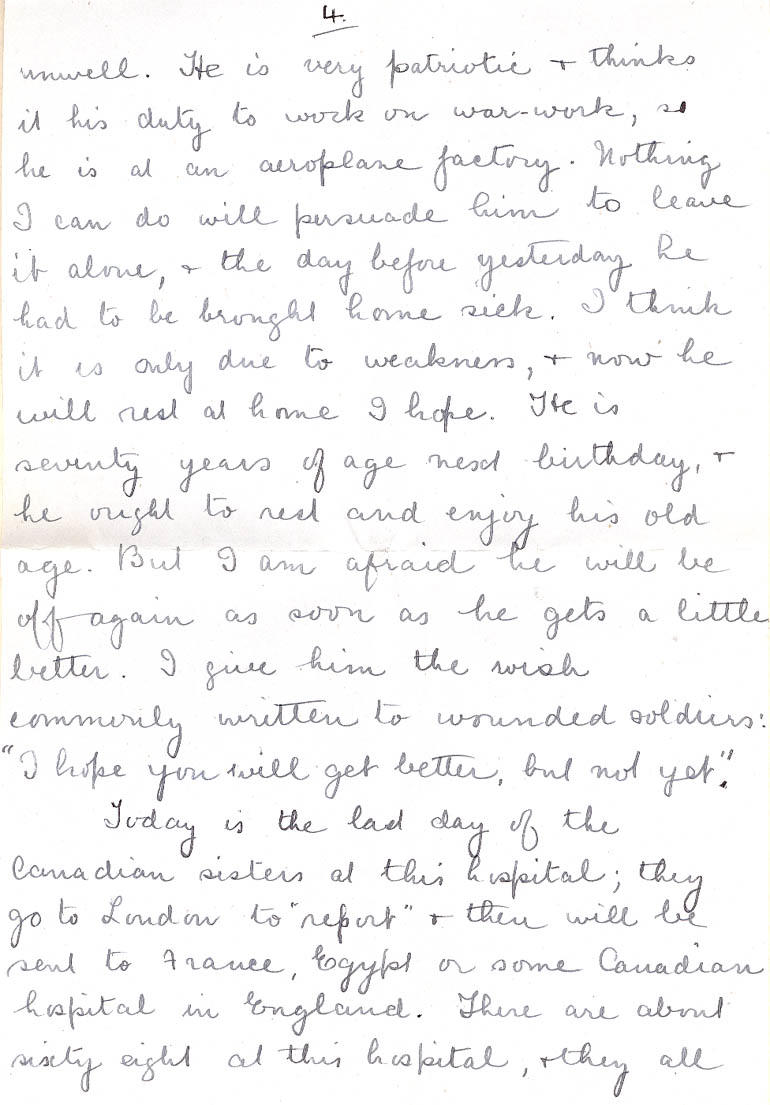 4.
unwell. He is very patriotic + thinks
it his duty to work on war-work, so
he is at an aeroplane factory. Nothing
I can do will persuade him to leave
it alone, + the day before yesterday he
had to be brought home sick. I think
it is only due to weakness, + now he
will rest at home I hope. He is
seventy years of age next birthday, +
he ought to rest and enjoy his old
age. But I am afraid he will be
off again as soon as he gets a little
better. I give him the wish
commonly written to wounded soldiers:
"I hope you will get better, but not yet".
Today is the last day of the
Canadian sisters at this hospital; they
go to London to "report" + then will be
sent to France, Egypt or some Canadian
hospital in England. There are about
sixty eight at this hospital, + they all